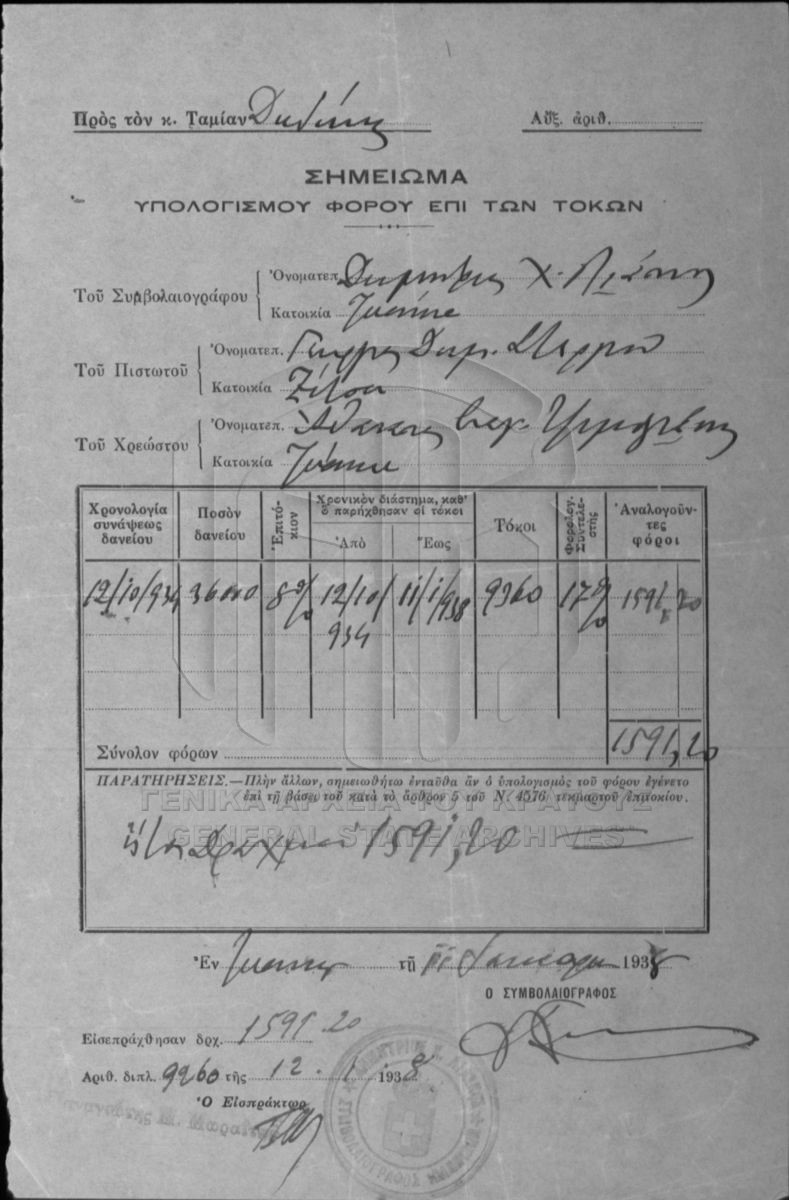 Πρὸς τὸν κ. Ταμίαν Αὔξ. ἀριθ.
ΣΗΜΕΙΩΜΑ
ΥΠΟΛΟΓΙΣΜΟΥ ΦΟΡΟΥ ΕΠΙ ΤΩΝ ΤΟΚΩΝ
Τοῦ Συμβολαιογράφου
Ὀνοματεπ. Δημήτριος Χ.
Κατοικία
Τοῦ Πιστωτοῦ
Ὀνοματεπ. Γεώργιος Δημ. Στεργίου
Κατοικία Ζίτσα
Τοῦ Χρεώστου
Ὀνοματεπ.
Κατοικία
Χρονολογία συνάψεως δανείου
Ποσὸν δανείου
Ἐπιτόκιον
Χρονικὸν διάστημα, καθ' ὃ παρήχθησαν οἱ τόκοι
Ἀπὸ
Ἕως
Τόκοι
Φορολογ. Συντελεστὴς
Ἀναλογοῦντες φόροι
12/10/934 36000 8% 12/10/934 11/1/938 9360 17% 1591,20
Σύνολον φόρων 1591,20
ΠΑΡΑΤΗΡΗΣΕΙΣ.—Πλὴν ἄλλων, σημειωθήτω ἐνταῦθα ἂν ὁ ὑπολογισμὸς τοῦ φόρου ἐγένετο
ἐπὶ τῇ βάσει τοῦ κατὰ τὸ ἄρθρον 5 τοῦ Ν. 4576 τεκμαρτοῦ ἐπιτοκίου.
ΓΕΝΙΚΑ ΑΡΧΕΙΑ ΤΟΥ ΚΡΑΤΟΥΣ
GENERAL STATE ARCHIVES
ἤτοι Δραχμαὶ 1591,20
Ἐν τῇ 11 Ἰανουαρίου 1938
Ο ΣΥΜΒΟΛΑΙΟΓΡΑΦΟΣ
Εἰσεπράχθησαν δρχ. 1591.20
Ἀριθ. διπλ. 9260 τῆς 12.1 1938
Ὁ Εἰσπράκτωρ